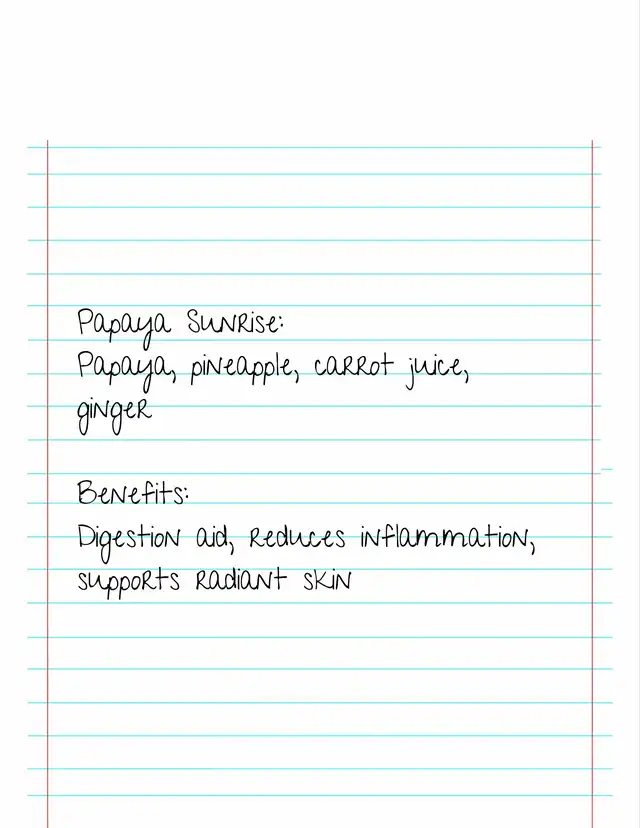 Papaya Sunrise:
Papaya, pineapple, carrot juice,
ginger
Benefits:
Digestion aid, reduces inflammation,
supports radiant skin